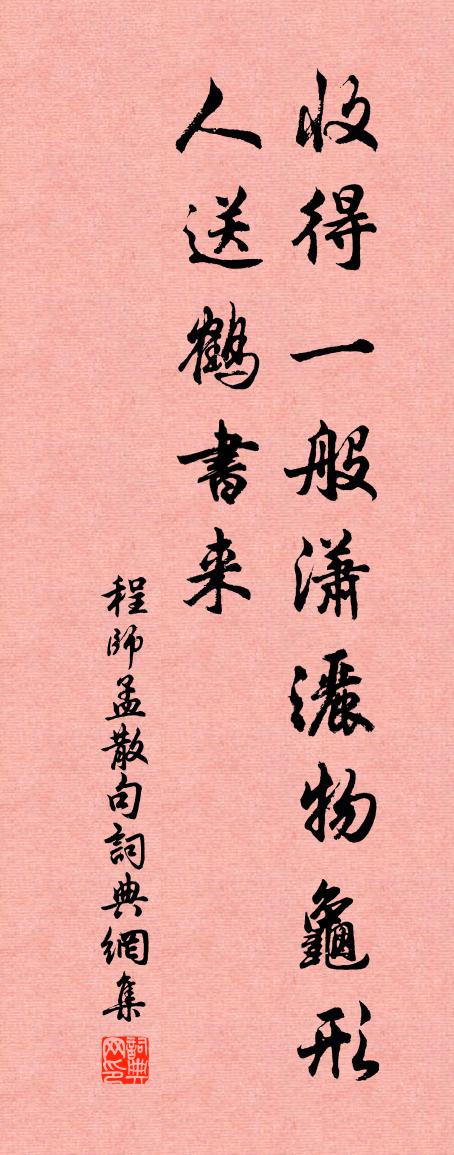 收得一般瀟灑物龜形
人送鶴書来
程師孟散句詞典網集
詞典网印